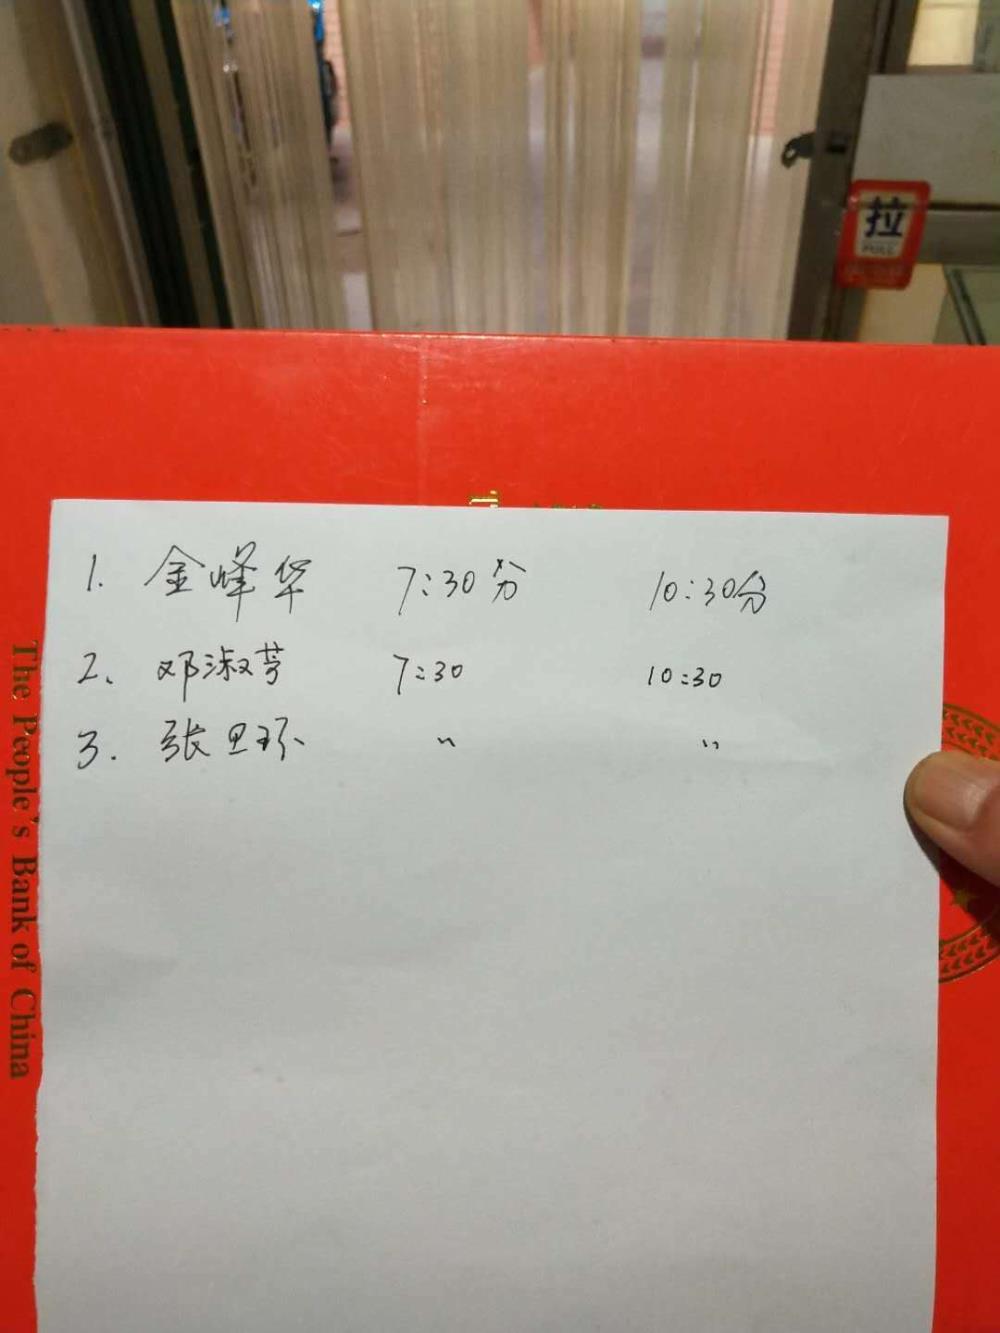 拉
PULL
1. 金峰华 7:30分 10:30分
2. 邓淑芳 7:30 10:30
3. 张里环 〃 〃
The People's Bank of China